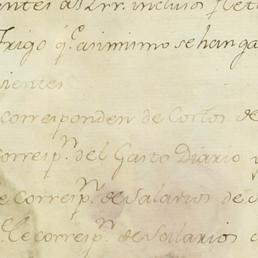 antes asTrr. incluso flete
Trigo q.e asimismo se han ga
ientes
corresponden de Cortos de
corresp.n del Gasto Diario y
e corresp.n de Salarios de S
Le corresp.n de Salarios